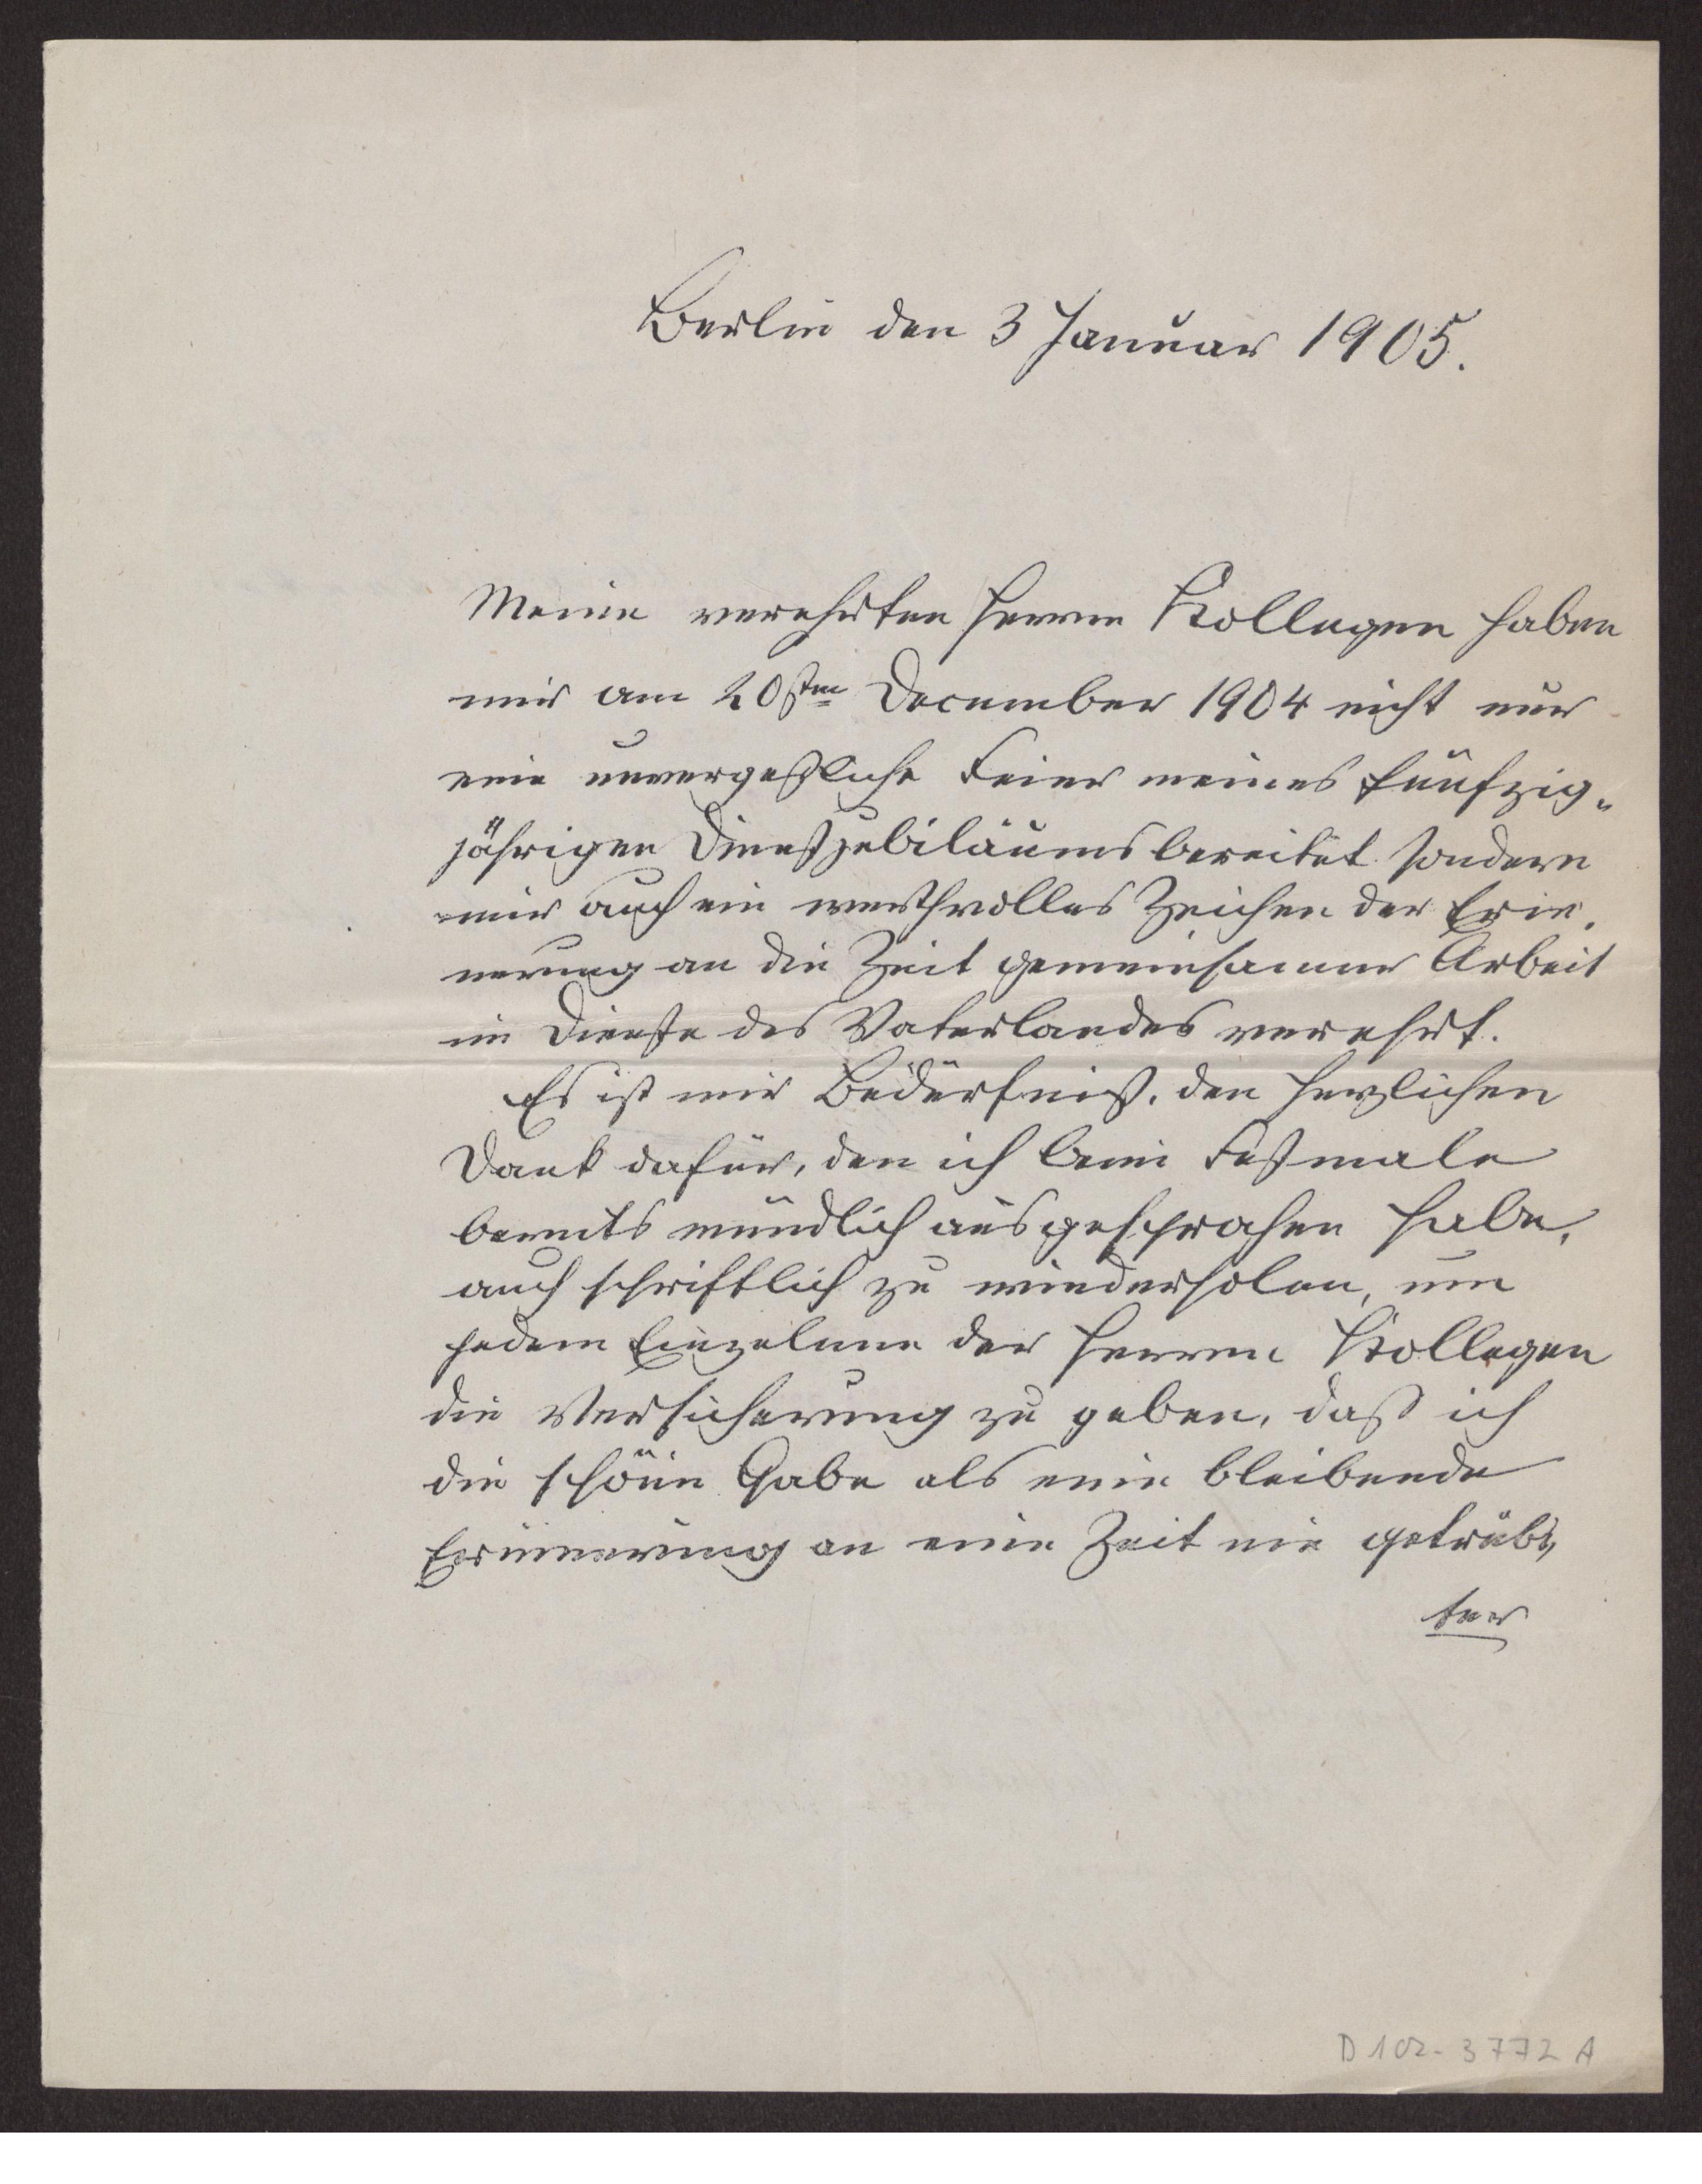 Berlin den 3 Januar 1905.
Meine verehrten Herren Kollegen haben
mir am 20sten December 1904 nicht nur
eine unvergeßliche Feier meines fünfzig-
jährigen Dienstjubiläums bereitet sondern
mir auch ein werthvolles Zeichen der Erin-
nerung an die Zeit gemeinsamer Arbeit
im Dienste des Vaterlandes verehrt.
Es ist mir Bedürfniß, den herzlichen
Dank dafür, den ich beim Festmale
bereits mündlich ausgesprochen habe,
auch schriftlich zu wiederholen, um
jedem Einzelnen der Herren Kollegen
die Versicherung zu geben, daß ich
die schöne Gabe als eine bleibende
Erinnerung an eine Zeit nie getrüb-
ter
D 102-3772 A